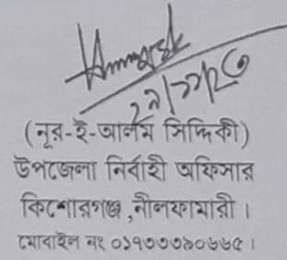 ২১/১১/২৩
(নূর-ই-আলম সিদ্দিকী)
উপজেলা নির্বাহী অফিসার
কিশোরগঞ্জ ,নীলফামারী ।
মোবাইল নং ০১৭৩৩৩৯০৬৬৫ ।